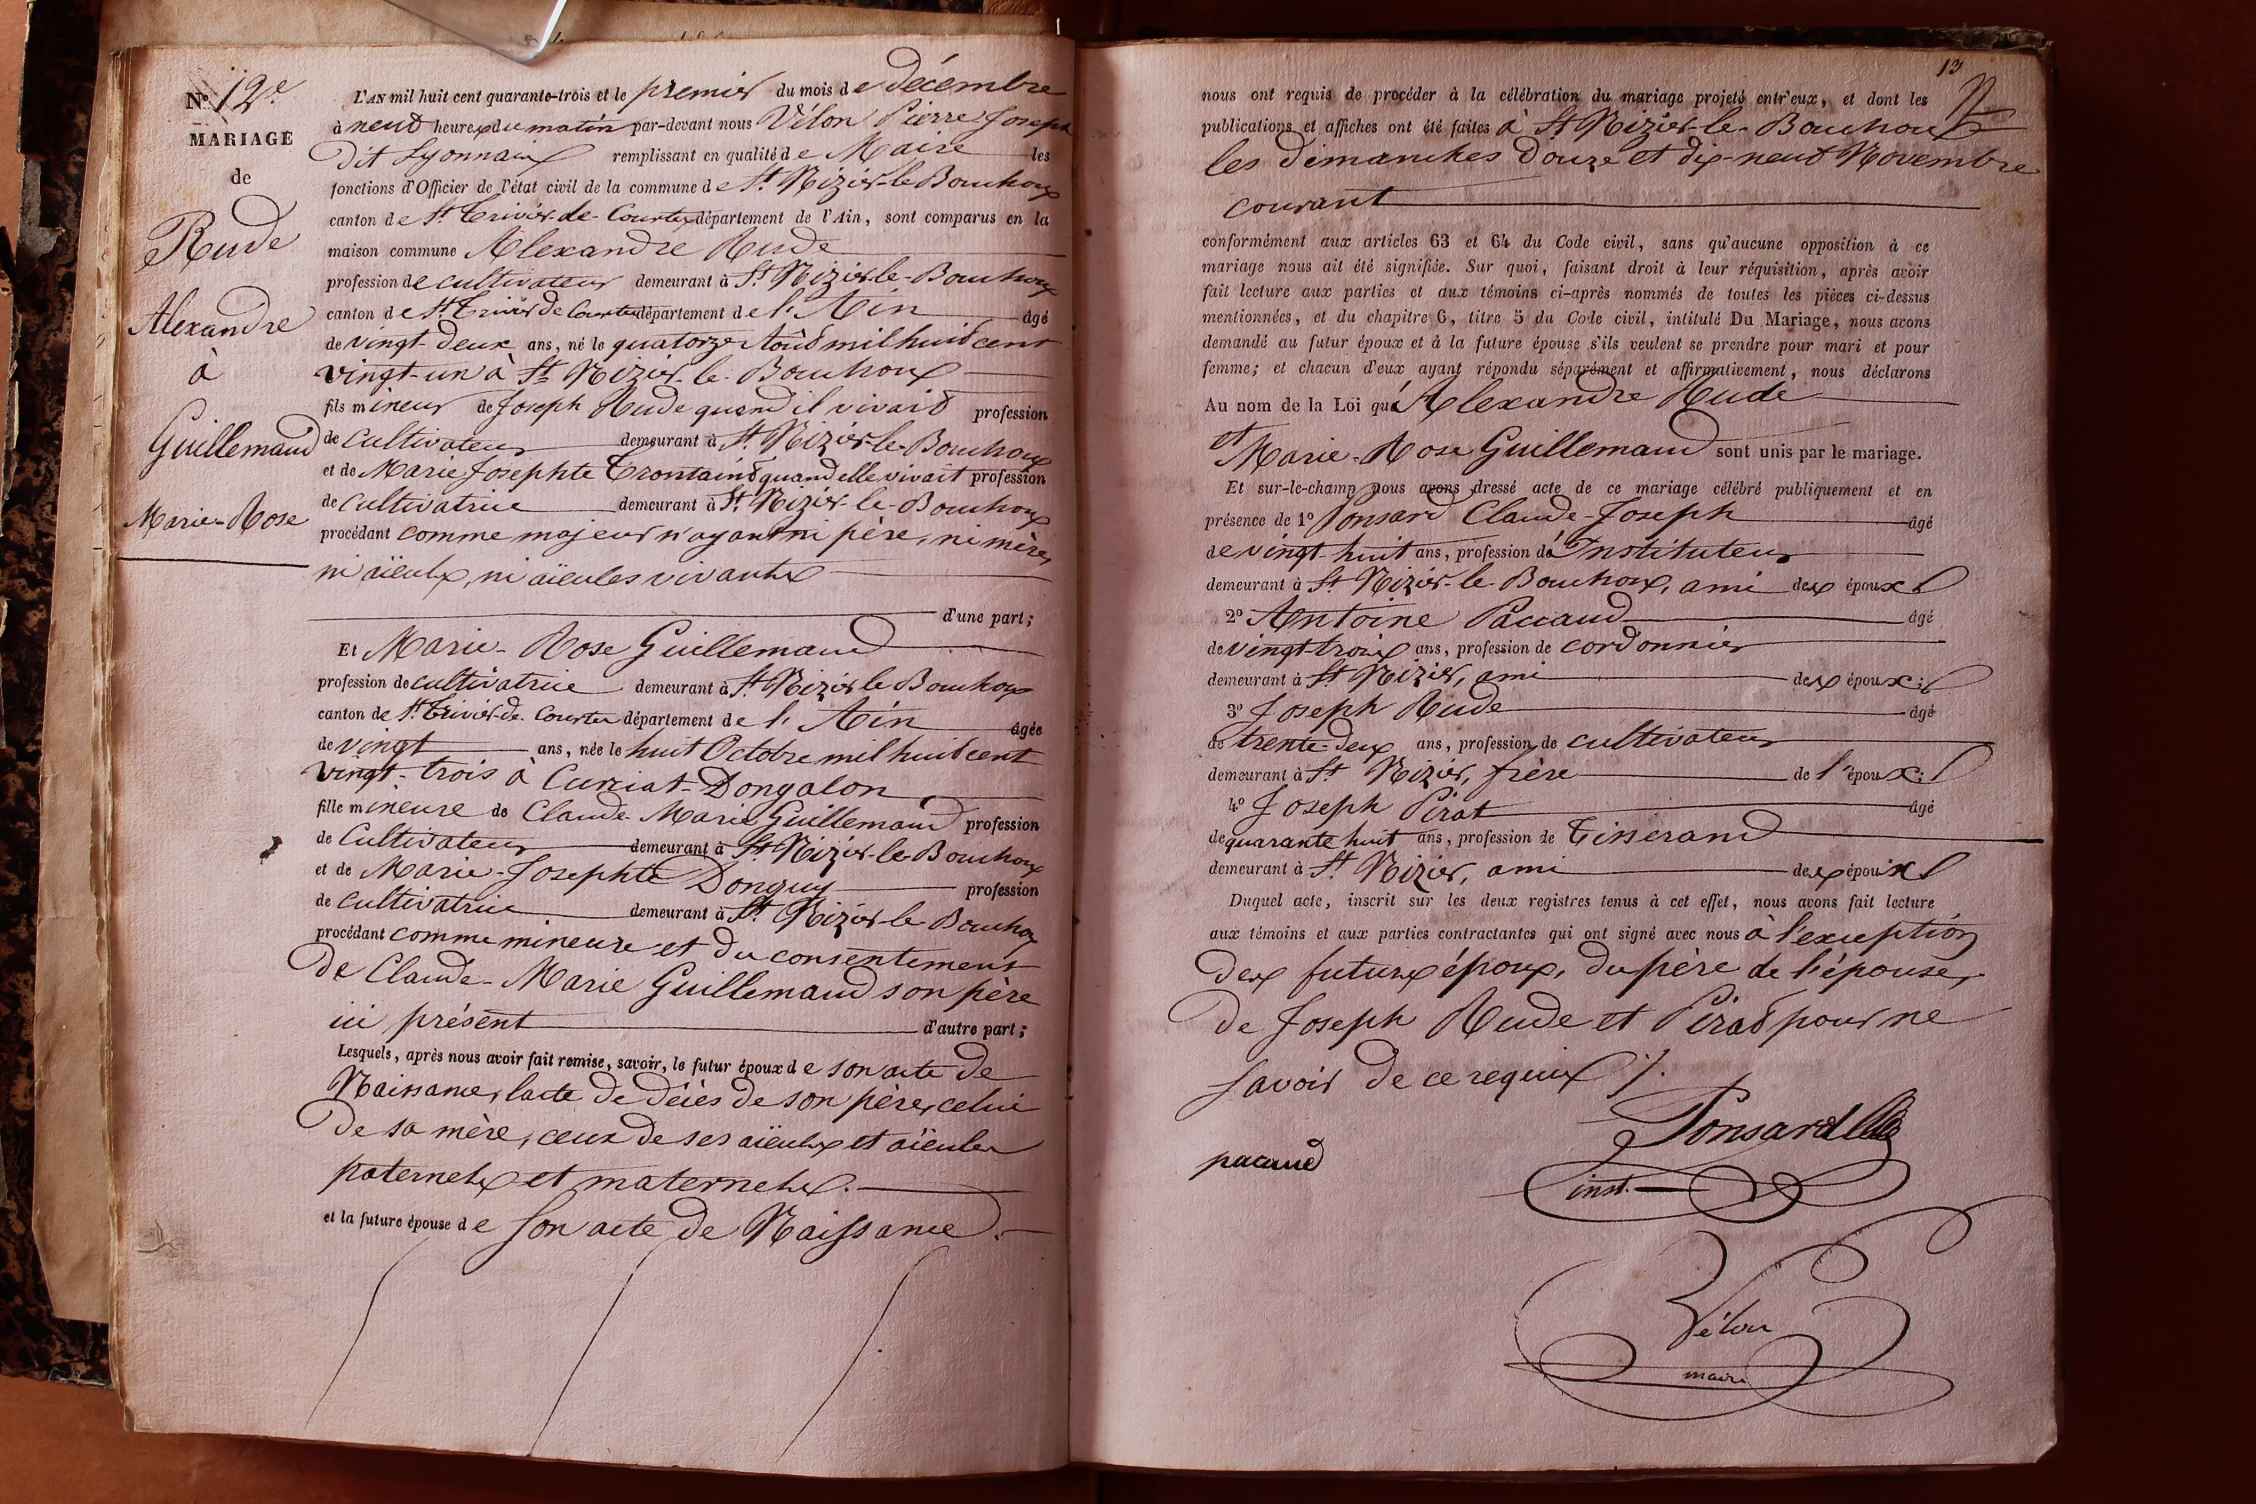 No 12e
MARIAGE
de
Rude
Alexandre
à
Guillemaud
Marie-Rose
L'AN mil huit cent quarante-trois et le premier du mois de décembre
à neuf heures du matin par-devant nous Vélon Pierre Joseph
dit Lyonnais remplissant en qualité de Maire les
fonctions d'Officier de l'état civil de la commune de St Nizier-le-Bouchoux
canton de St Trivier-de-Courtes département de l'Ain, sont comparus en la
maison commune Alexandre Rude
profession de cultivateur demeurant à St Nizier-le-Bouchoux
canton de St Trivier de Courtes département de l'Ain âgé
de vingt-deux ans, né le quatorze Août mil huit cent
vingt-un à St Nizier-le-Bouchoux
fils mineur de Joseph Rude quand il vivait profession
de Cultivateur demeurant à St Nizier-le-Bouchoux
et de Marie Josephte Trontaint quand elle vivait profession
de cultivatrice demeurant à St Nizier-le-Bouchoux
procédant comme majeur n'ayant ni père, ni mère,
ni aïeuls, ni aïeules vivants
d'une part;
Et Marie-Rose Guillemaud
profession de cultivatrice demeurant à St Nizier le Bouchoux
canton de St Trivier-de-Courtes département de l'Ain âgée
de vingt ans, née le huit Octobre mil huit cent
vingt-trois à Curciat-Dongalon
fille mineure de Claude-Marie Guillemaud profession
de Cultivateur demeurant à St Nizier-le-Bouchoux
et de Marie-Josephte Donguy profession
de cultivatrice demeurant à St Nizier-le-Bouchoux
procédant comme mineure et du consentement
de Claude-Marie Guillemaud son père
ici présent d'autre part;
Lesquels, après nous avoir fait remise, savoir, le futur époux de son acte de
Naissance, l'acte de décès de son père, celui
de sa mère, ceux de ses aïeuls et aïeules
paternels et maternels.
et la future épouse de son acte de Naissance.
13
nous ont requis de procéder à la célébration du mariage projeté entr'eux, et dont les
publications et affiches ont été faites à St Nizier-le-Bouchoux
les dimanches douze et dix-neuf Novembre
courant
conformément aux articles 63 et 64 du Code civil, sans qu'aucune opposition à ce
mariage nous ait été signifiée. Sur quoi, faisant droit à leur réquisition, après avoir
fait lecture aux parties et aux témoins ci-après nommés de toutes les pièces ci-dessus
mentionnées, et du chapitre 6, titre 5 du Code civil, intitulé Du Mariage, nous avons
demandé au futur époux et à la future épouse s'ils veulent se prendre pour mari et pour
femme; et chacun d'eux ayant répondu séparément et affirmativement, nous déclarons
Au nom de la Loi qu'Alexandre Rude
et Marie-Rose Guillemaud sont unis par le mariage.
Et sur-le-champ nous avons dressé acte de ce mariage célébré publiquement et en
présence de 1o Ponsard Claude-Joseph âgé
de vingt-huit ans, profession d'Instituteur
demeurant à St Nizier-le-Bouchoux, ami des époux
2o Antoine Paccaud âgé
de vingt-trois ans, profession de cordonnier
demeurant à St Nizier, ami des époux;
3o Joseph Rude âgé
de trente-deux ans, profession de cultivateur
demeurant à St Nizier, frère de l'époux;
4o Joseph Pirat âgé
de quarante huit ans, profession de Tisserand
demeurant à St Nizier, ami des époux
Duquel acte, inscrit sur les deux registres tenus à cet effet, nous avons fait lecture
aux témoins et aux parties contractantes qui ont signé avec nous à l'exception
des futurs époux, du père de l'épouse,
de Joseph Rude et Pirat pour ne
savoir de ce requis ./.
Ponsard
pacaud
inst.
Vélon
maire